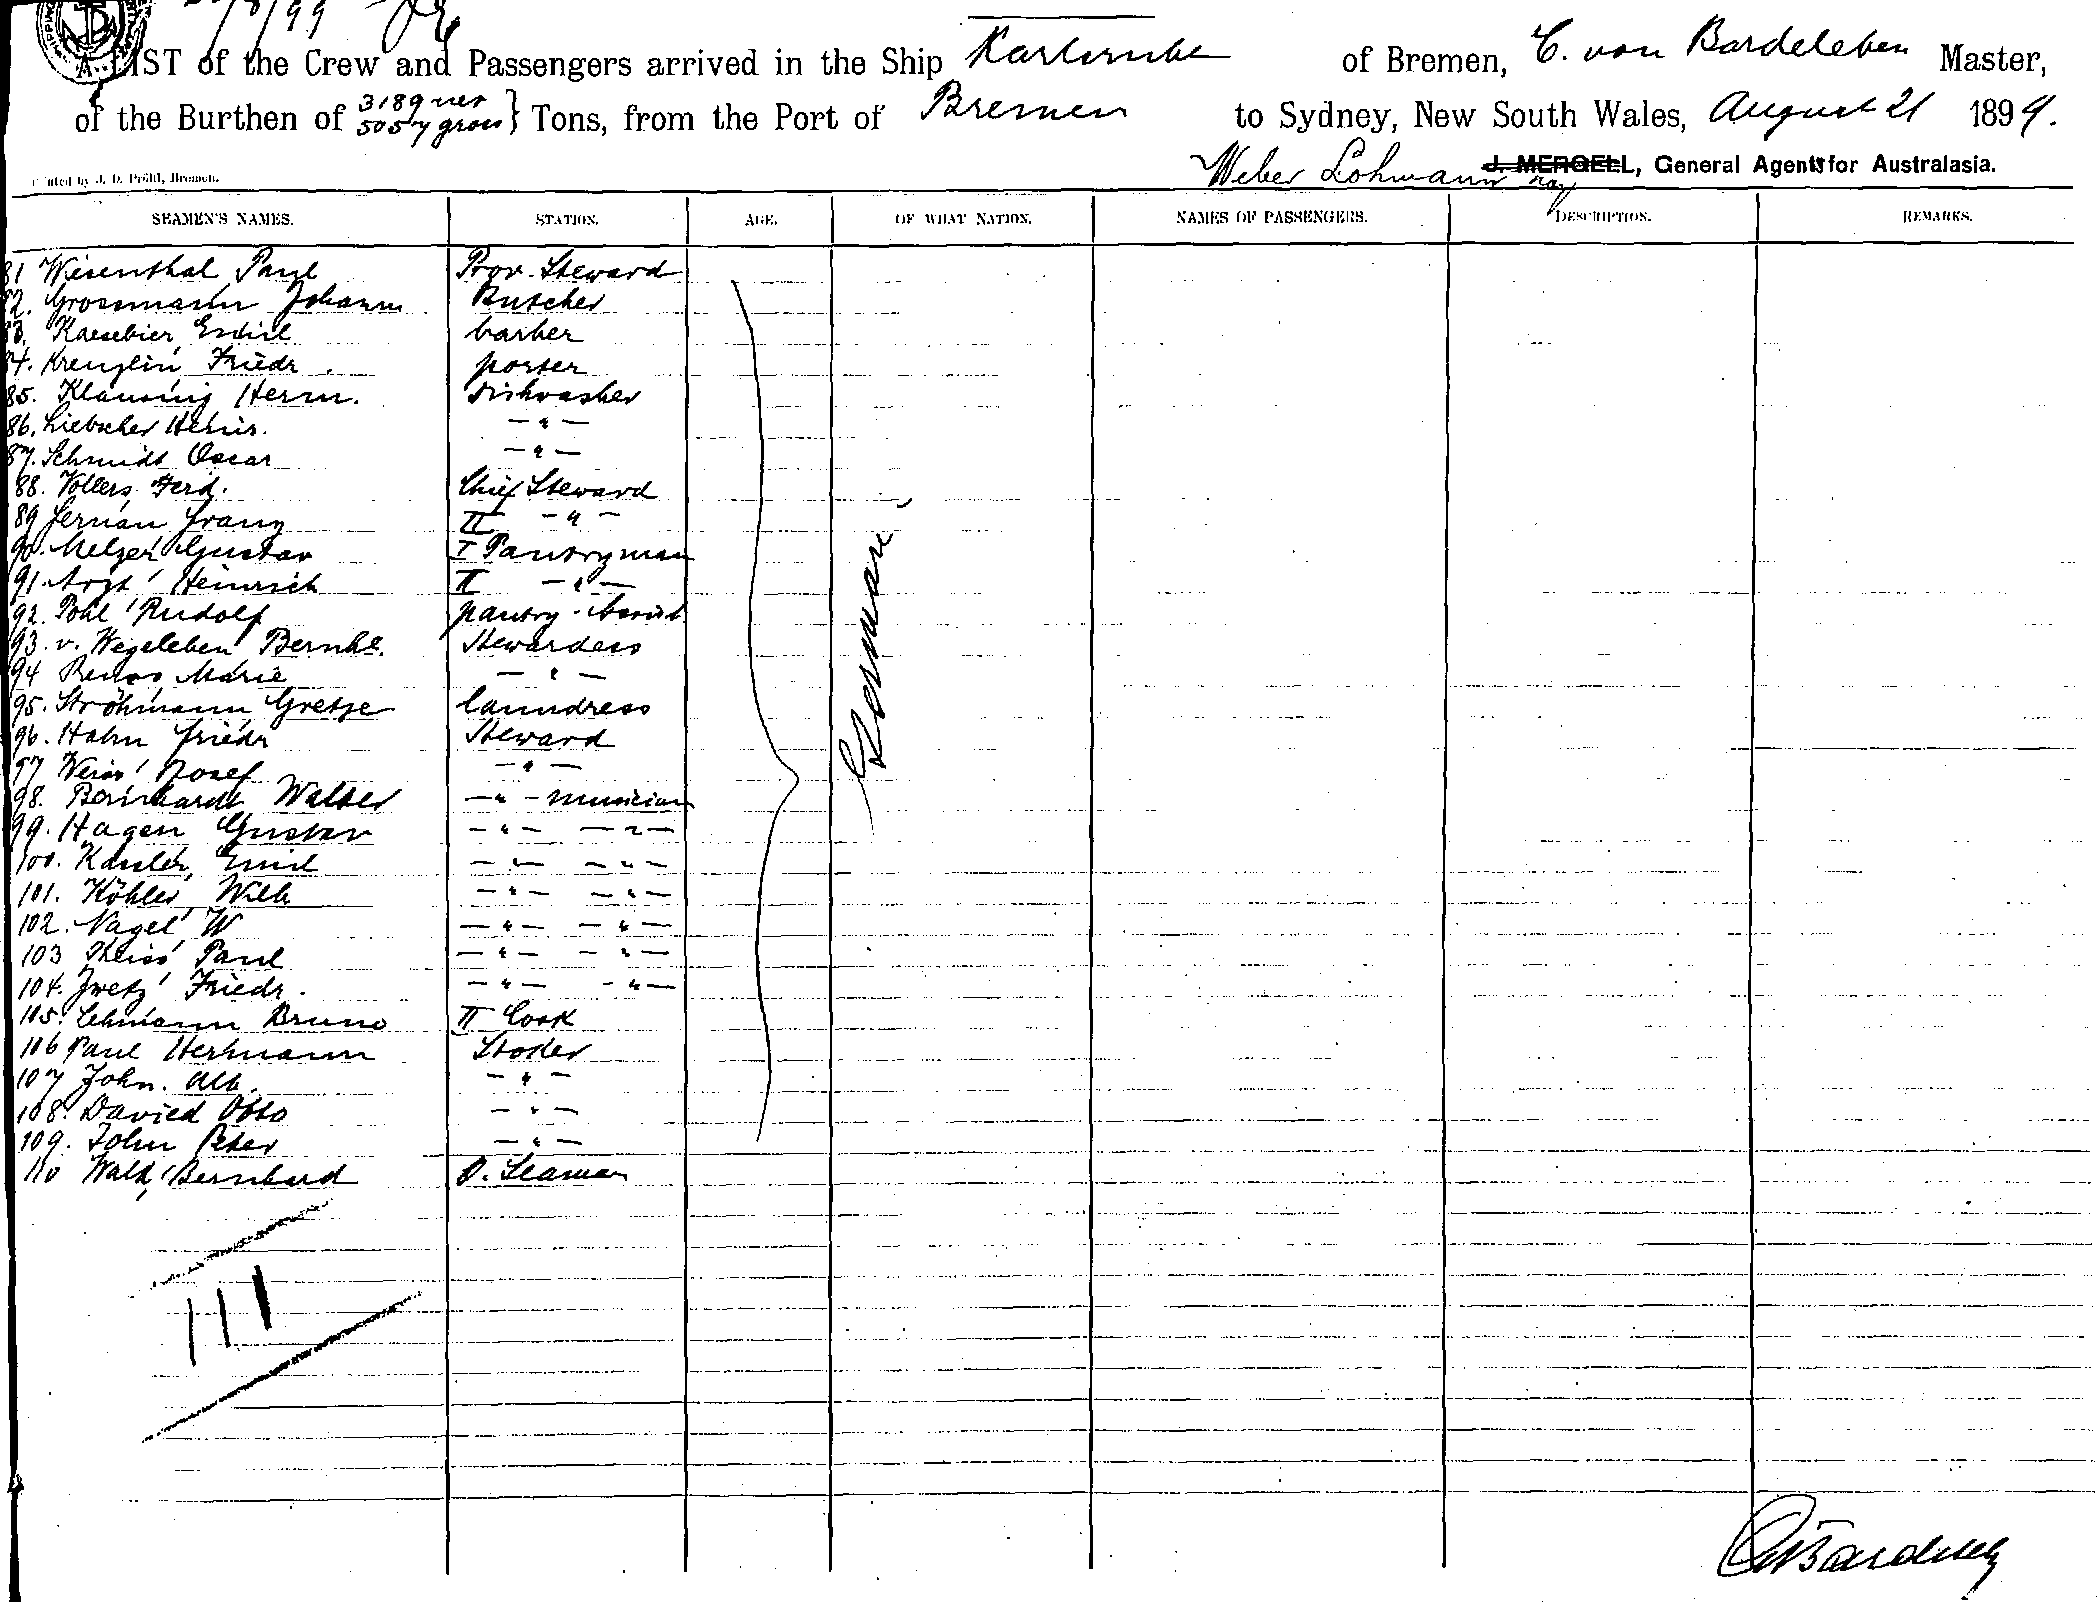 /8/99
A LIST of the Crew and Passengers arrived in the Ship Karlsruhe of Bremen, C. von Bardeleben Master,
of the Burthen of 3189 net 5057 gross } Tons, from the Port of Bremen to Sydney, New South Wales, August 21 1899.
Weber Lohmann J. MERGELL, General Agents for Australasia.
Printed by J. D. Pröhl, Bremen.
SEAMEN'S NAMES. STATION. AGE. OF WHAT NATION. NAMES OF PASSENGERS. DESCRIPTION. REMARKS.
81 Wiesenthal Paul Prov. Steward
82. Grossmann Johann Butcher
83. Kaesebier, Emil barber
84. Krenzlin Friedr. porter
85. Klausing Herm. dishwasher
86. Liebscher Heinr. — " —
87. Schmidt Oscar — " —
88. Vollers, Ferd. Chief Steward
89 Jernan Franz II — " —
90. Melzer Gustav I Pantryman
91. Arzt Heinrich II — " —
92. Pohl Rudolf pantry-
93. v. Wegeleben Bernh. Stewardess
94 Marie — " —
95. Ströhmann Gretje laundress
96. Hahn Friedr Steward
97 Weiss Josef — " —
98. Bernhardt Walter — " — musician
99. Hagen Gustav — " — — " —
100. Kessler, Emil — " — — " —
101. Köhler, Wilh — " — — " —
102. Nagel W — " — — " —
103 Theiss Paul — " — — " —
104. Zwetz Friedr. — " — — " —
105. Lehmann Bruno II Cook
106 Paul Hermann Stoker
107 John. Alb. — " —
108. Davied Otto — " —
109. John Peter — " —
110 Wald, Bernhard O. Seaman
German
111